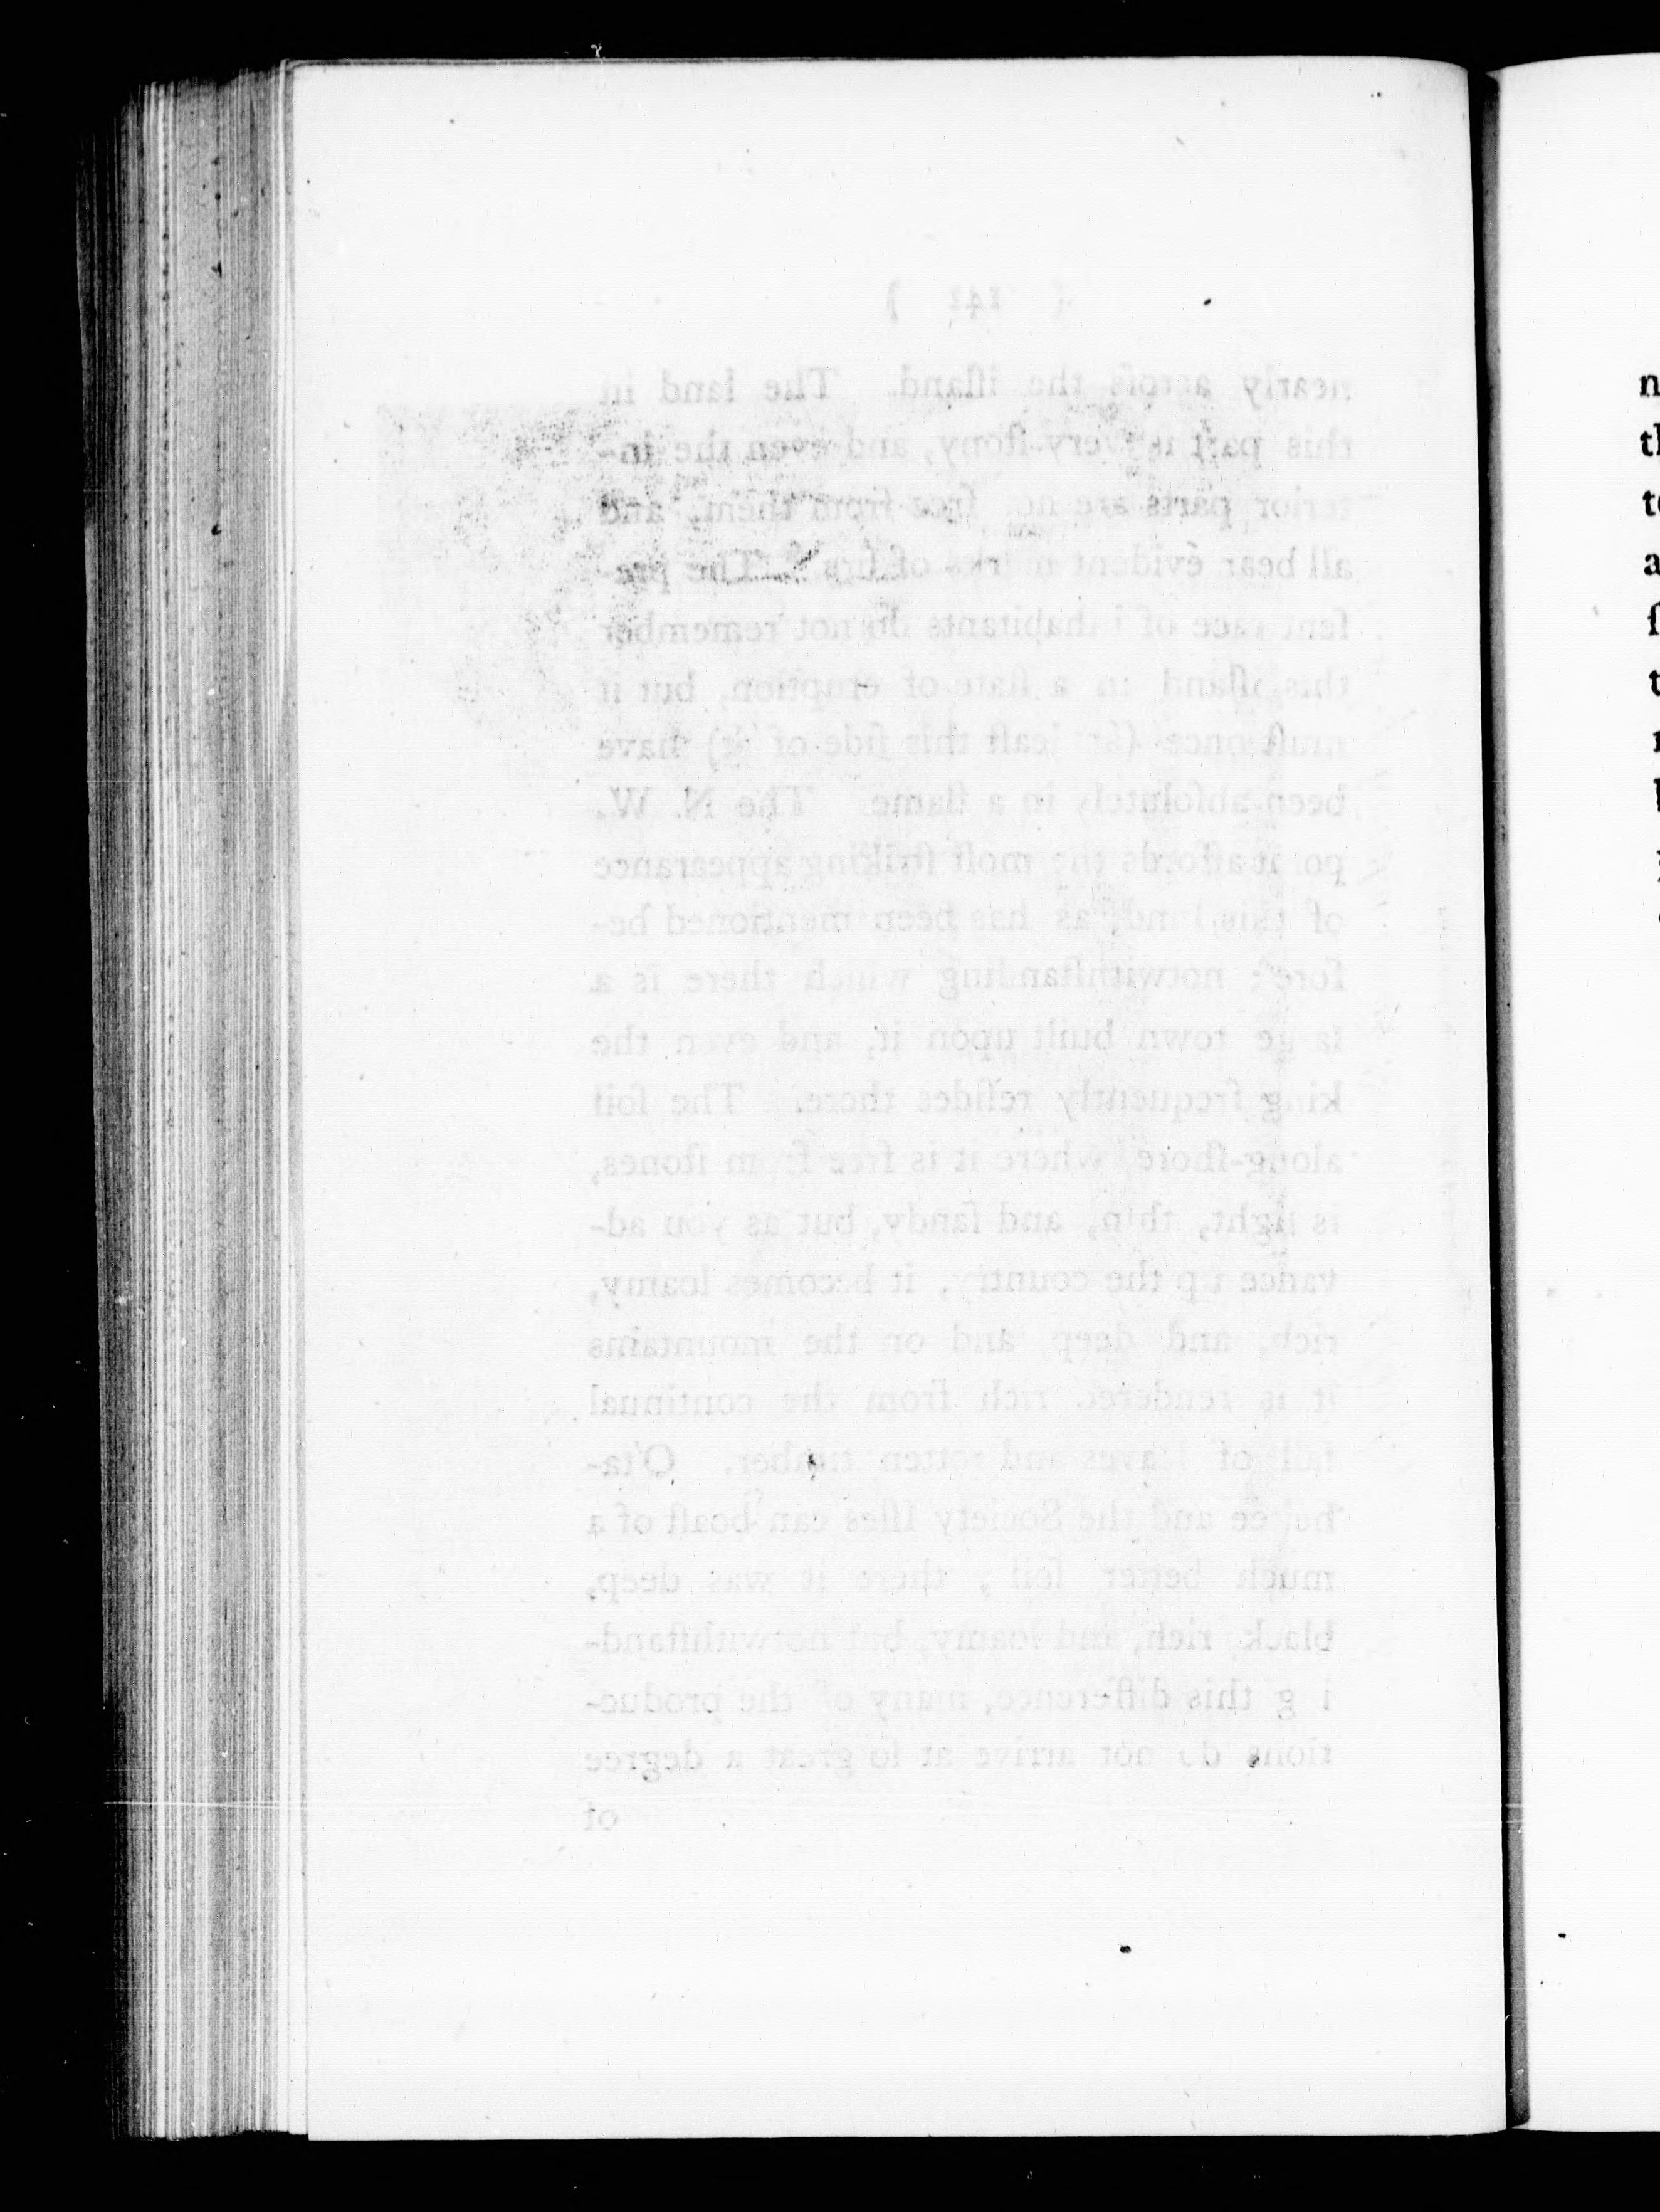 ( 141 )
nearly acroſs the iſland. The land in
this part is very ſtony, and even the in-
terior parts are not free from them, and
all bear evident marks of fire. The pre-
ſent race of inhabitants do not remember
this iſland in a ſtate of eruption, but it
muſt once (at leaſt this ſide of it) have
been abſolutely in a flame. The N. W.
point affords the moſt ſtriking appearance
of this kind, as has been mentioned be-
fore; notwithſtanding which there is a
large town built upon it, and even the
king frequently reſides there. The ſoil
along-ſhore, where it is free from ſtones,
is light, thin, and ſandy, but as you ad-
vance up the country, it becomes loamy,
rich, and deep, and on the mountains
it is rendered rich from the continual
fall of leaves and rotten timber. O'ta-
heitee and the Society Iſles can boaſt of a
much better ſoil; there it was deep,
black, rich, and loamy, but notwithſtand-
ing this difference, many of the produc-
tions do not arrive at ſo great a degree
of
n
th
a
ſ
t